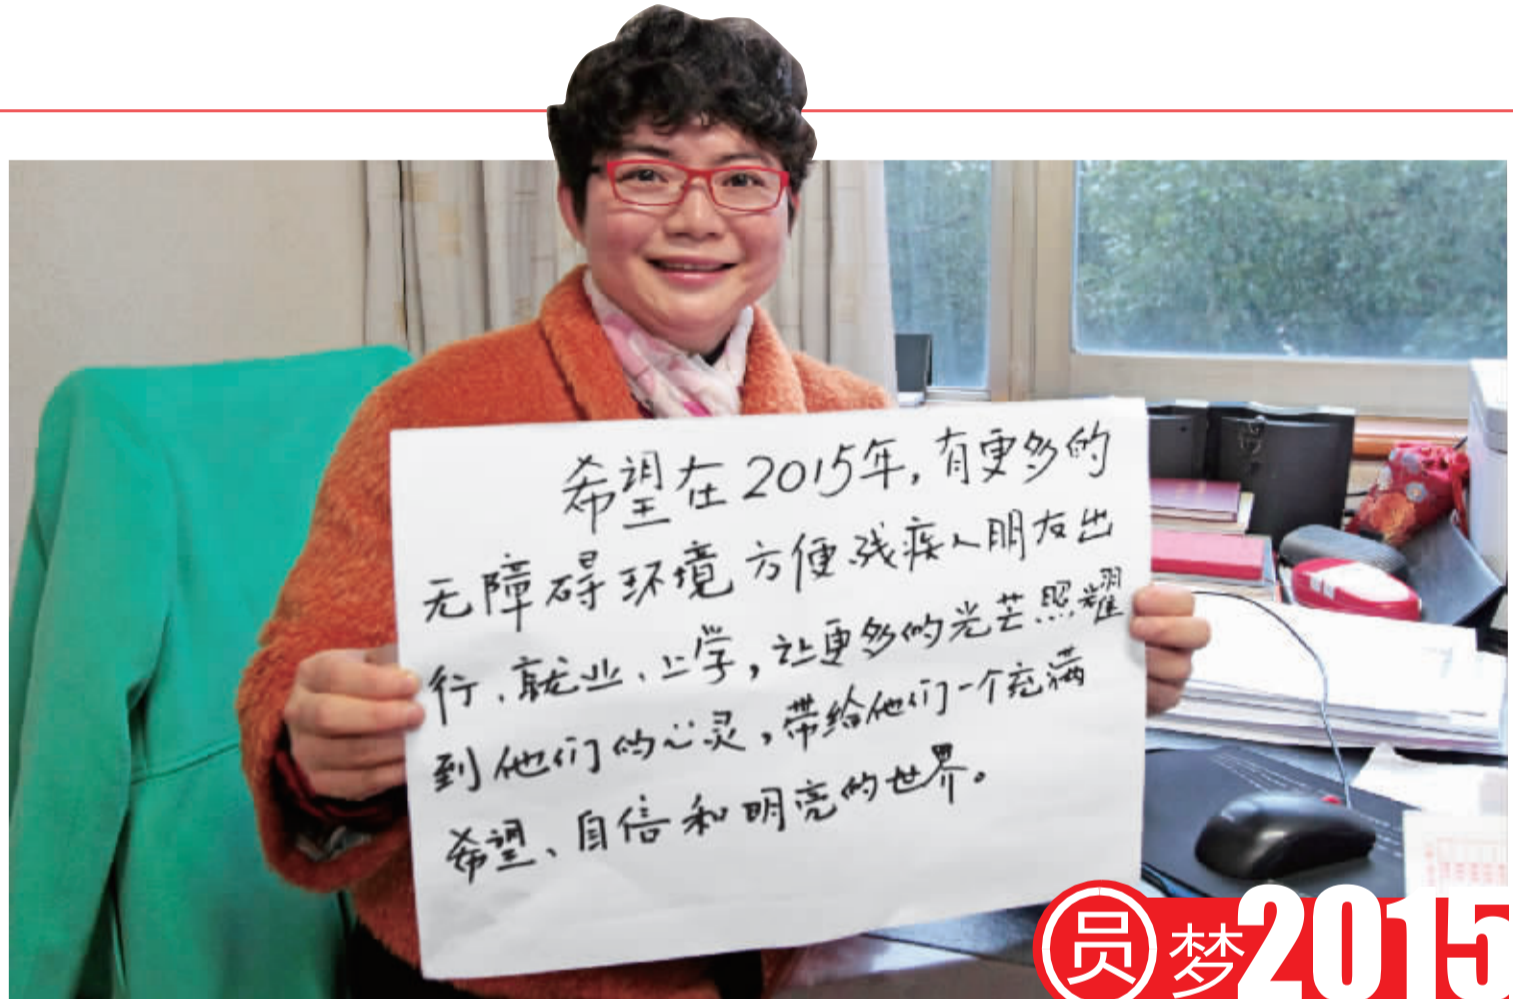 希望在2015年,有更多的
无障碍环境方便残疾人朋友出
行、就业、上学,让更多的光芒照耀
到他们的心灵,带给他们一个充满
希望、自信和明亮的世界。
圆梦2015